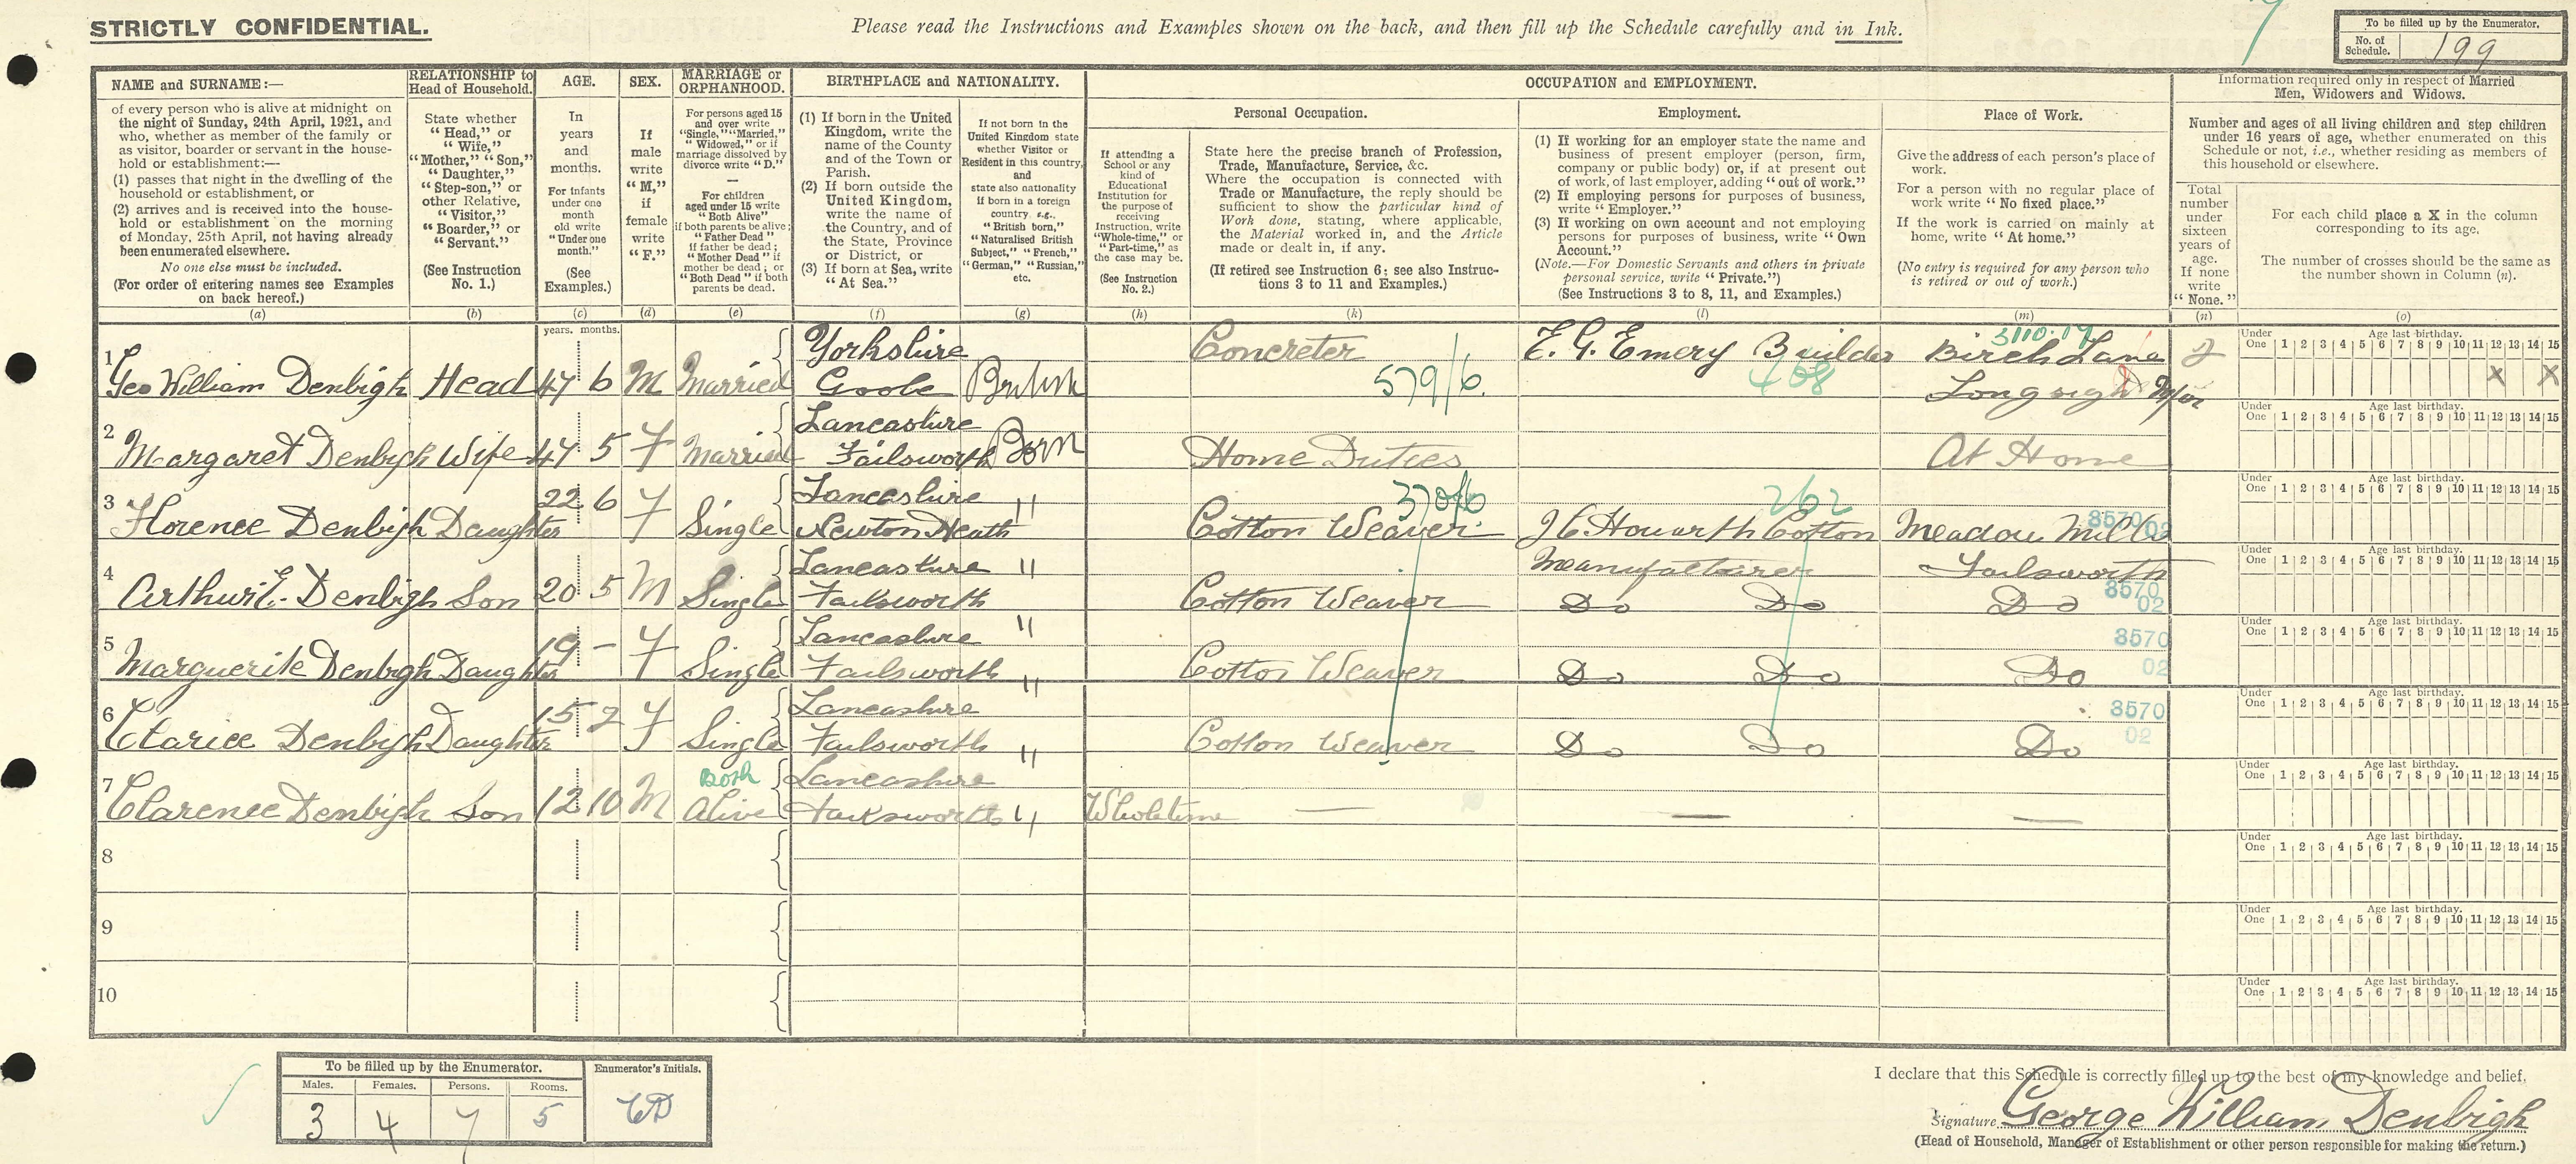 STRICTLY CONFIDENTIAL.
Please read the Instructions and Examples shown on the back, and then fill up the Schedule carefully and in Ink.
To be filled up by the Enumerator.
No. of Schedule. 199
NAME and SURNAME:—
of every person who is alive at midnight on
the night of Sunday, 24th April, 1921, and
who, whether as member of the family or
as visitor, boarder or servant in the house-
hold or establishment:—
(1) passes that night in the dwelling of the
household or establishment, or
(2) arrives and is received into the house-
hold or establishment on the morning
of Monday, 25th April, not having already
been enumerated elsewhere.
No one else must be included.
(For order of entering names see Examples
on back hereof.)
(a)
RELATIONSHIP to
Head of Household.
State whether
"Head," or
"Wife,"
"Mother," "Son,"
"Daughter,"
"Step-son," or
other Relative,
"Visitor,"
"Boarder," or
"Servant."
(See Instruction
No. 1.)
(b)
AGE.
In
years
and
months.
For infants
under one
month
old write
"Under one
month."
(See
Examples.)
(c)
SEX.
If
male
write
"M,"
if
female
write
"F."
(d)
MARRIAGE or
ORPHANHOOD.
For persons aged 15
and over write
"Single," "Married,"
"Widowed," or if
marriage dissolved by
divorce write "D."
—
For children
aged under 15 write
"Both Alive"
if both parents be alive;
"Father Dead"
if father be dead;
"Mother Dead" if
mother be dead; or
"Both Dead" if both
parents be dead.
(e)
BIRTHPLACE and NATIONALITY.
(1) If born in the United
Kingdom, write the
name of the County
and of the Town or
Parish.
(2) If born outside the
United Kingdom,
write the name of
the Country, and of
the State, Province
or District, or
(3) If born at Sea, write
"At Sea."
(f)
If not born in the
United Kingdom state
whether Visitor or
Resident in this country,
and
state also nationality
if born in a foreign
country, e.g.,
"British born,"
"Naturalised British
Subject," "French,"
"German," "Russian,"
etc.
(g)
OCCUPATION AND EMPLOYMENT.
Personal Occupation.
If attending a
School or any
kind of
Educational
Institution for
the purpose of
receiving
Instruction, write
"Whole-time," or
"Part-time," as
the case may be.
(See Instruction
No. 2.)
(h)
State here the precise branch of Profession,
Trade, Manufacture, Service, &c.
Where the occupation is connected with
Trade or Manufacture, the reply should be
sufficient to show the particular kind of
Work done, stating, where applicable,
the Material worked in, and the Article
made or dealt in, if any.
(If retired see Instruction 6; see also Instruc-
tions 3 to 11 and Examples.)
(k)
Employment.
(1) If working for an employer state the name and
business of present employer (person, firm,
company or public body) or, if at present out
of work, of last employer, adding "out of work."
(2) If employing persons for purposes of business,
write "Employer."
(3) If working on own account and not employing
persons for purposes of business, write "Own
Account."
(Note.—For Domestic Servants and others in private
personal service, write "Private.")
(See Instructions 3 to 8, 11, and Examples.)
(l)
Place of Work.
Give the address of each person's place of
work.
For a person with no regular place of
work write "No fixed place."
If the work is carried on mainly at
home, write "At home."
(No entry is required for any person who
is retired or out of work.)
(m)
Information required only in respect of Married
Men, Widowers and Widows.
Number and ages of all living children and step children
under 16 years of age, whether enumerated on this
Schedule or not, i.e., whether residing as members of
this household or elsewhere.
Total
number
under
sixteen
years of
age.
If none
write
"None."
(n)
For each child place a X in the column
corresponding to its age.
The number of crosses should be the same as
the number shown in Column (n).
(o)
years. months.
Under One Age last birthday. 1 2 3 4 5 6 7 8 9 10 11 12 13 14 15
1 Geo William Denbigh Head 47 6 M Married Yorkshire Goole British Concreter 579/6. E. G. Emery Builder 408 3110.19 Birch Lane Longsight M/cr 2 X X
Under One Age last birthday. 1 2 3 4 5 6 7 8 9 10 11 12 13 14 15
2 Margaret Denbigh Wife 47 5 F Married Lancashire Failsworth Born Home Duties At Home
Under One Age last birthday. 1 2 3 4 5 6 7 8 9 10 11 12 13 14 15
3 Florence Denbigh Daughter 22 6 F Single Lancashire Newton Heath " Cotton Weaver 370/6 J C Howarth Cotton Manufacturer 262 Meadow Mills Failsworth 8570 02
Under One Age last birthday. 1 2 3 4 5 6 7 8 9 10 11 12 13 14 15
4 Arthur E. Denbigh Son 20 5 M Single Lancashire Failsworth " Cotton Weaver Do Do Do 8570 02
Under One Age last birthday. 1 2 3 4 5 6 7 8 9 10 11 12 13 14 15
5 Marguerite Denbigh Daughter 19 – F Single Lancashire Failsworth " Cotton Weaver Do Do Do 8570 02
Under One Age last birthday. 1 2 3 4 5 6 7 8 9 10 11 12 13 14 15
6 Clarice Denbigh Daughter 15 2 F Single Lancashire Failsworth " Cotton Weaver Do Do Do 8570 02
Under One Age last birthday. 1 2 3 4 5 6 7 8 9 10 11 12 13 14 15
7 Clarence Denbigh Son 12 10 M Both Alive Lancashire Failsworth " Wholetime — — —
Under One Age last birthday. 1 2 3 4 5 6 7 8 9 10 11 12 13 14 15
8
Under One Age last birthday. 1 2 3 4 5 6 7 8 9 10 11 12 13 14 15
9
Under One Age last birthday. 1 2 3 4 5 6 7 8 9 10 11 12 13 14 15
10
Under One Age last birthday. 1 2 3 4 5 6 7 8 9 10 11 12 13 14 15
To be filled up by the Enumerator.
Males. Females. Persons. Rooms.
3 4 7 5
Enumerator's Initials.
I declare that this Schedule is correctly filled up to the best of my knowledge and belief.
Signature George William Denbigh
(Head of Household, Manager of Establishment or other person responsible for making the return.)